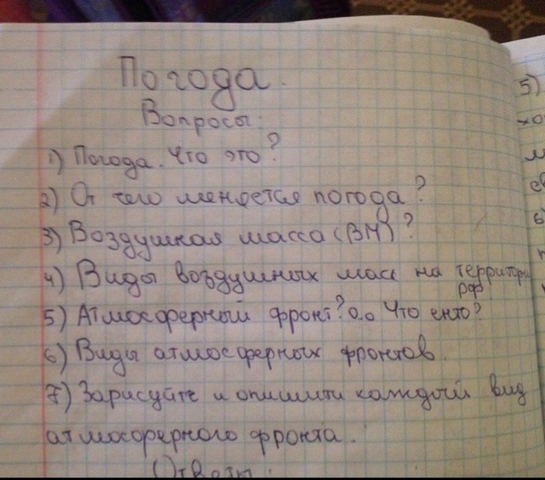 Погода.
Вопросы:
1) Погода. Что это?
2) От чего меняется погода?
3) Воздушная масса (ВМ)?
4) Виды воздушных масс на территори
РФ
5) Атмосферный фронт? О.о Что енто?
6) Виды атмосферных фронтов.
7) Зарисуйте и опишити каждый вид
атмосферного фронта.
Ответы:
5)
хо
м
6)